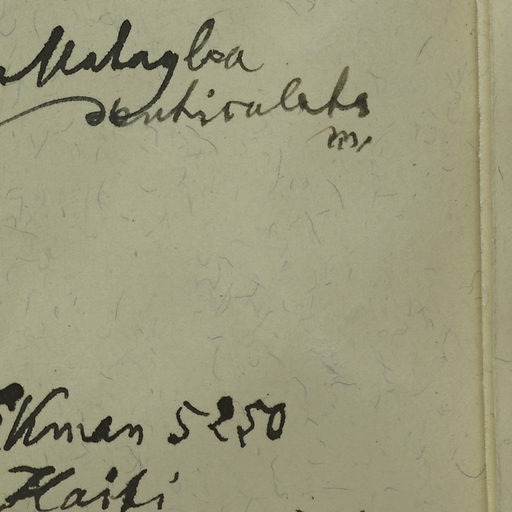 Matayba
denticulata
m.
Ekman 5250
Haiti